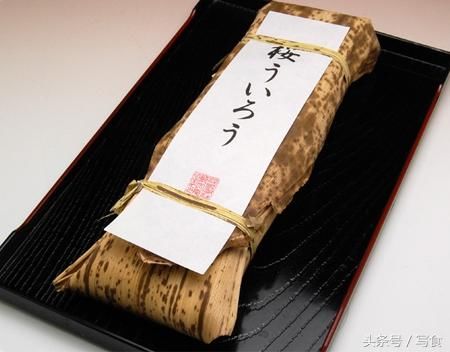 桜ういろう
头条号/写食